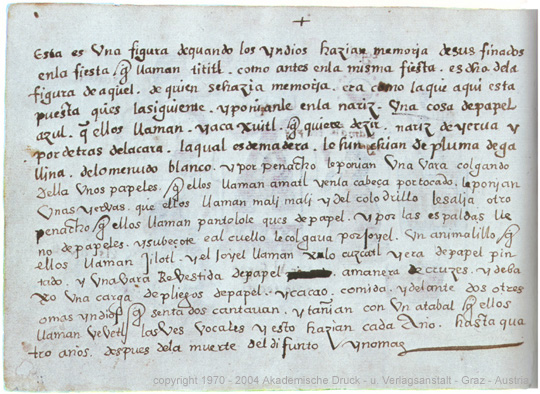 +
Esta es una figura de quando los yndios hazian memoria de sus finados
en la fiesta q llaman tititl. como antes en la misma fiesta. es dho de la
figura de aquel. de quien se hazia memoria. era como la que aqui esta
puesta ques la siguiente. y ponianle en la nariz. una cosa de papel
azul. q ellos llaman. yaca xuitl. q quiere dezir. nariz de yerva y
por detras de la cara. la qual es de madera. le hunchian de pluma de ga
llina. de lo menudo blanco. y por penacho le ponian una vara colgando
della unos papeles. q ellos llaman amatl y en la cabeça por tocado. le ponian
unas yervas. que ellos llaman mali mali y del colodrillo le salia otro
penacho q ellos llaman pantolole ques de papel. y por las espaldas lle
no de papeles. y su beçote e al cuello le colgava por joyel. un animalillo q
ellos llaman jilotl. y el joyel llaman xolo cuzcatl y era de papel pin
tado. y una vara Revestida de papel a manera de cruzes. y deba
xo una carga de pliegos de papel. y cacao. comida. y delante dos o tres
o mas yndios q sentados cantavan. y tañian con un atabal q ellos
llaman vevetl las ves vocales y esto hazian cada Año. hasta qua
tro años. despues de la muerte del difunto y no mas
copyright 1970 - 2004 Akademische Druck - u. Verlagsanstalt - Graz - Austria